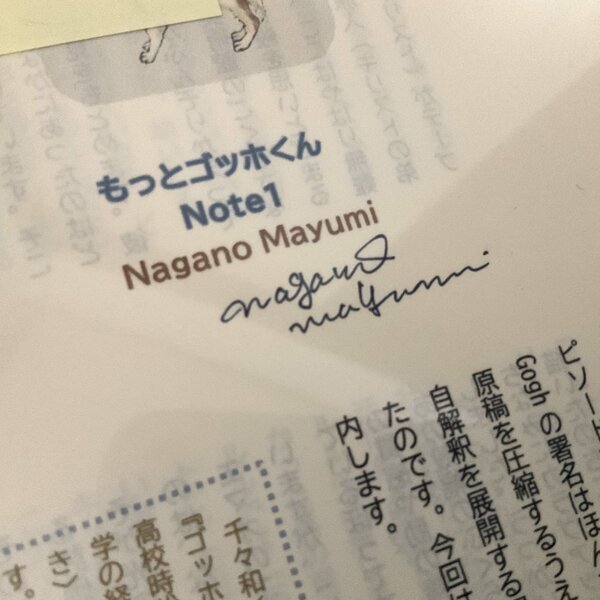 もっとゴッホくん
Note1
Nagano Mayumi
nagano
mayumi
ピソード
Gogh の署名はほん
原稿を圧縮するうえ
自解釈を展開する
たのです。今回は
内します。
千々和
『ゴッホ
高校時
学の経
き)
す。